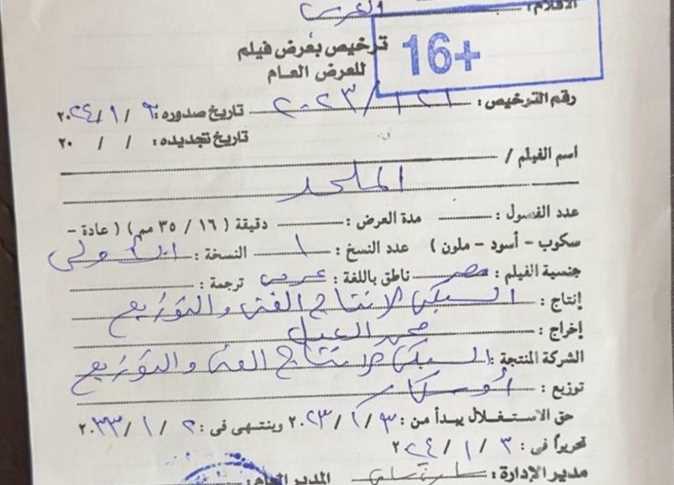 الأفلام: العربى
ترخيص بعرض فيلم
للعرض العام
16+
رقم الترخيص: ١٢١ / ٢٠٢٣ تاريخ صدوره: ٣ / ١ / ٢٠٢٤
تاريخ تجديده: / / ٢٠
اسم الفيلم /
الملحد
عدد الفصول: مدة العرض: دقيقة (١٦ / ٣٥ مم) (عادة -
سكوب - أسود - ملون) عدد النسخ: ١ النسخة: الأولى
جنسية الفيلم: مصر ناطق باللغة: عربى ترجمة:
إنتاج: السبكى لانتاج الفنى والتوزيع
إخراج: محمد العدل
الشركة المنتجة: السبكى لانتاج الفنى والتوزيع
توزيع: أوسكار
حق الاستغلال يبدأ من: ٣ / ١ / ٢٠٢٣ وينتهى فى: ٢ / ١ / ٢٠٣٣
تحريراً فى: ٣ / ١ / ٢٠٢٤
مدير الإدارة: المدير العام: